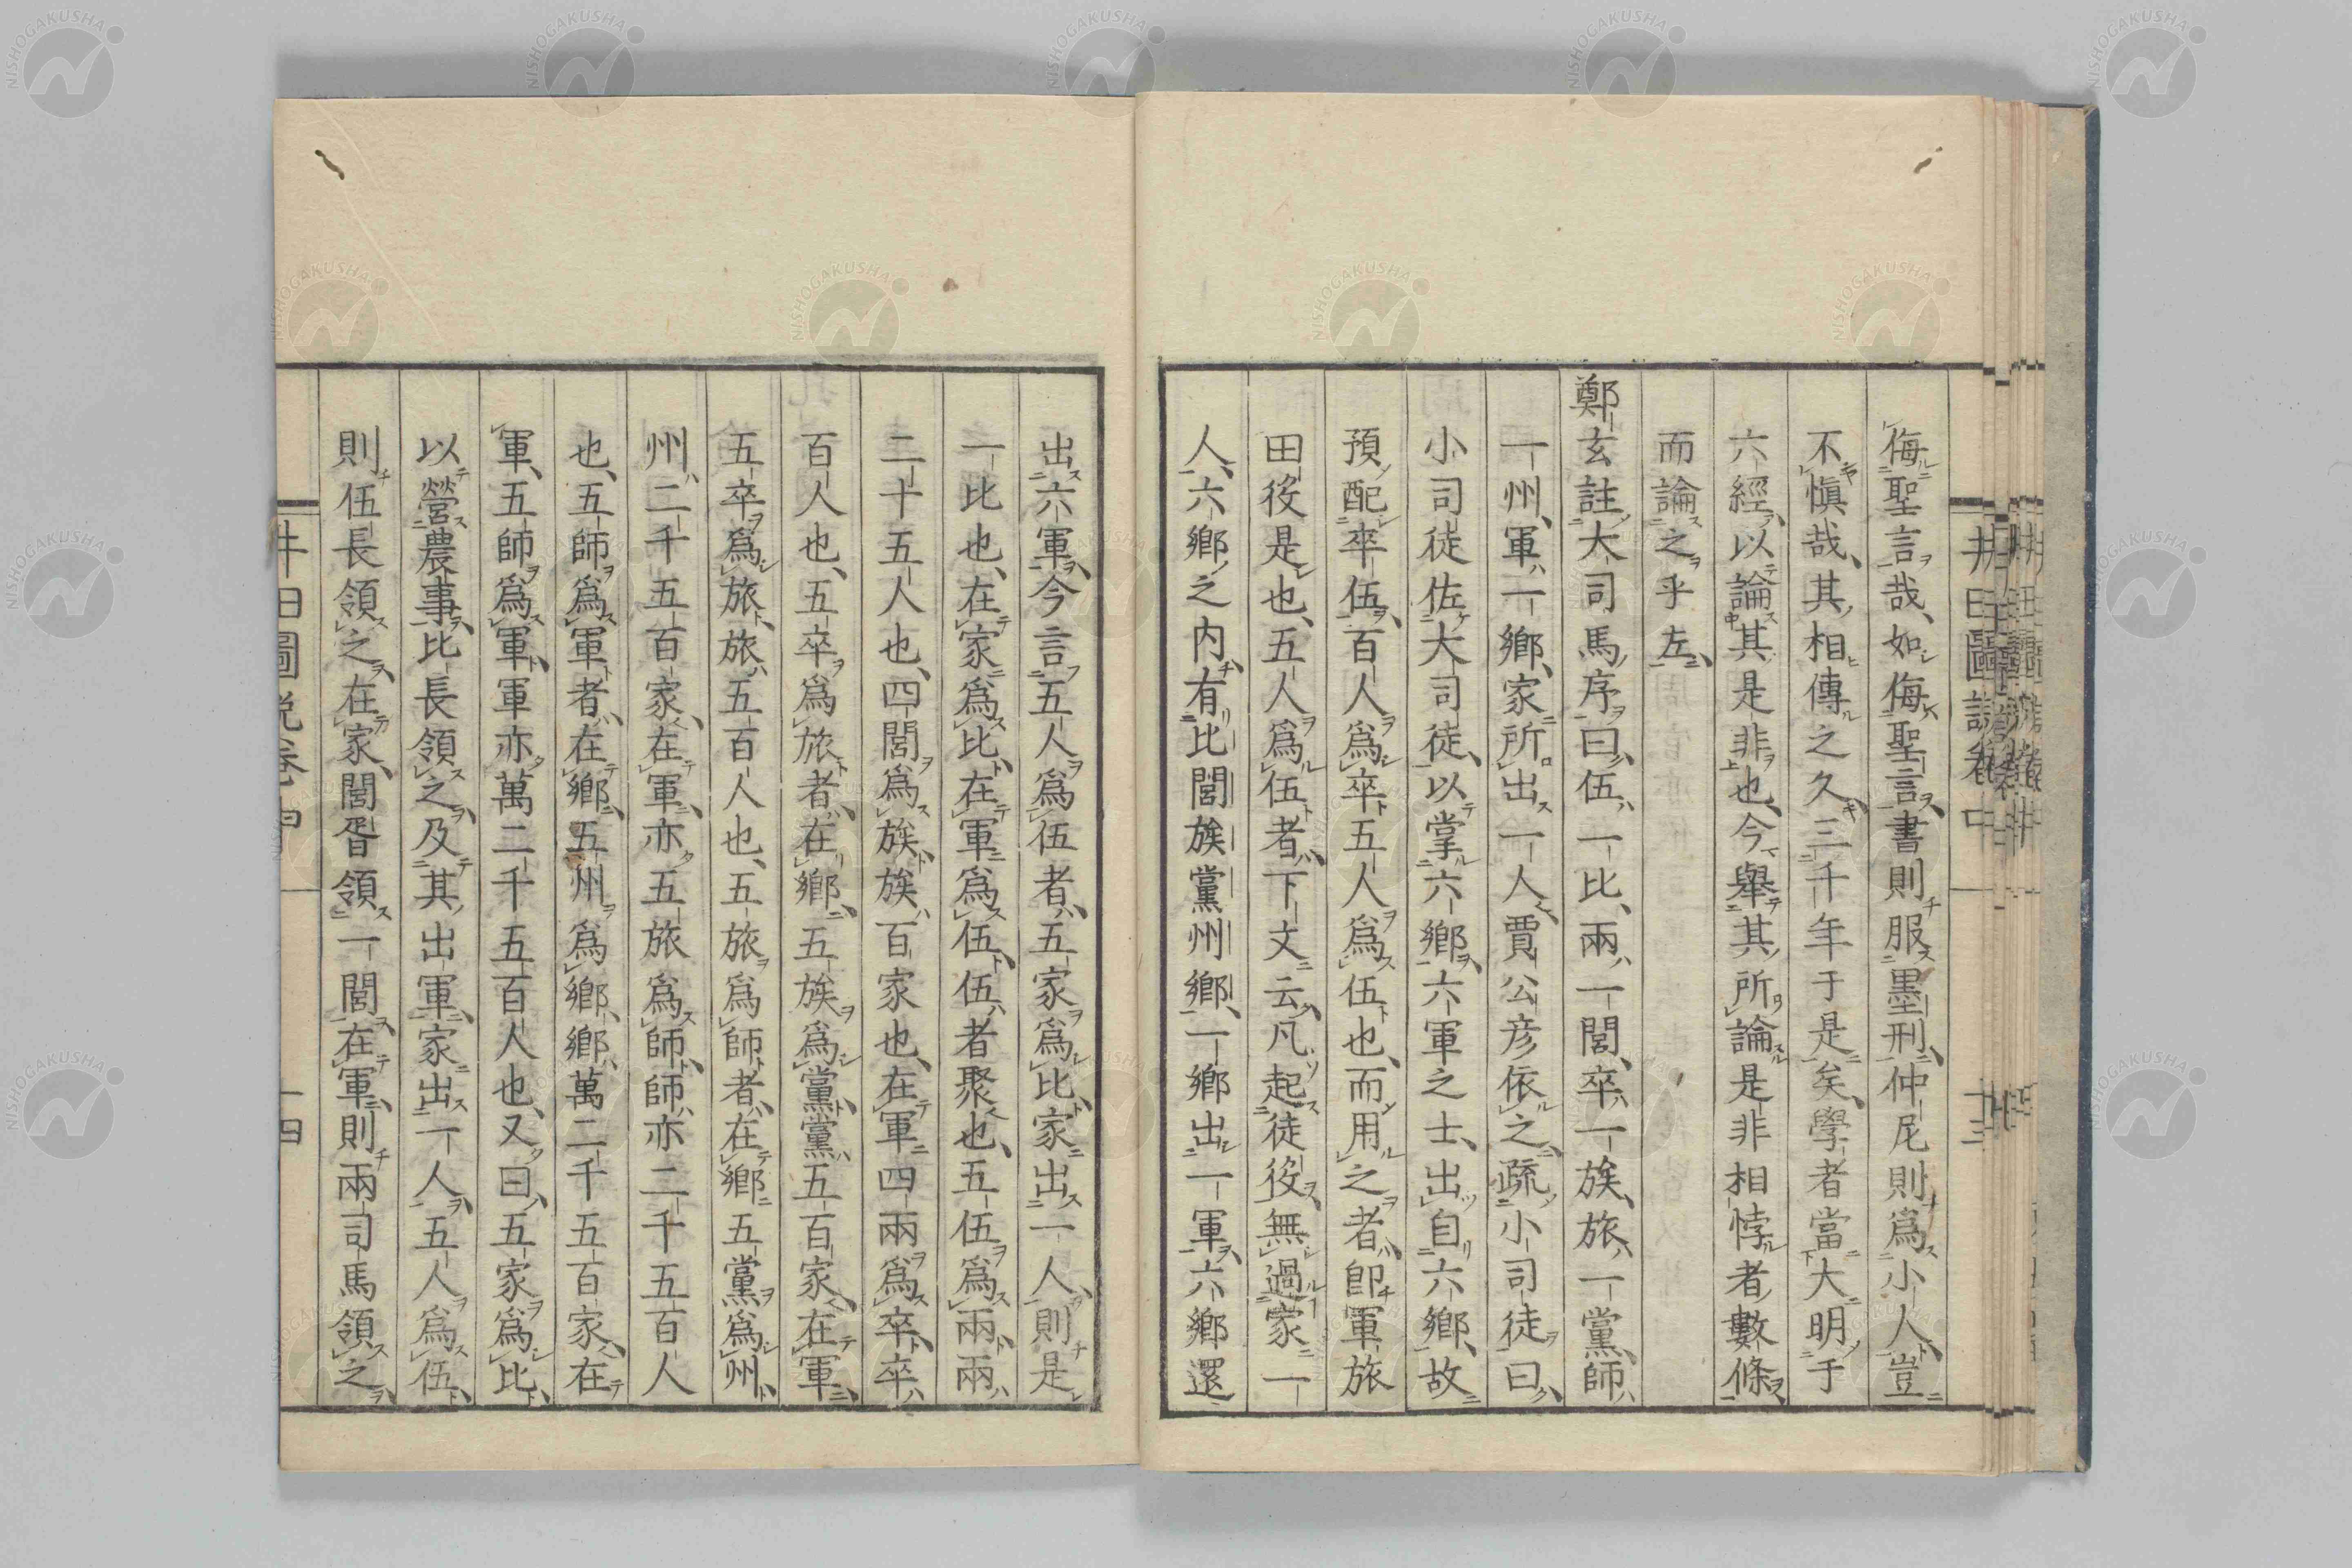 侮聖言哉、如侮聖言書則服墨刑、仲尼則爲小人、豈
不愼哉、其相傳之久、三千年于是矣、學者當大明于
六經、以論其是非也、今舉其所論是非相悖者數條
而論之乎左、
鄭玄註大司馬序曰、伍、一比、兩、一閭、卒、一族、旅、一黨、師、
一州、軍、一鄕、家所出一人、賈公彦依之、疏小司徒曰、
小司徒佐大司徒、以掌六鄕、六軍之士、出自六鄕、故
預配卒伍、百人爲卒五人爲伍也、而用之者、卽軍旅
田役是也、五人爲伍者、下文云、凡起徒役、無過家一
人、六鄕之内、有比閭族黨州鄕、一鄕出一軍、六鄕還
出六軍、今言五人爲伍者、五家爲比、家出一人、則是
一比也、在家爲比、在軍爲伍、伍者聚也、五伍爲兩、兩
二十五人也、四閭爲族、族百家也、在軍四兩爲卒、卒
百人也、五卒爲旅者、在鄕、五族爲黨、黨五百家、在軍、
五卒爲旅、旅五百人也、五旅爲師者、在鄕五黨爲州、
州二千五百家、在軍、亦五旅爲師、師亦二千五百人
也、五師爲軍者、在鄕、五州爲鄕、鄕萬二千五百家、在
軍、五師爲軍、軍亦萬二千五百人也、又曰、五家爲比、
以營農事、比長領之、及其出軍、家出一人、五人爲伍、
則伍長領之、在家、閭胥領一閭、在軍、則兩司馬領之、
井田圖説卷中
十四